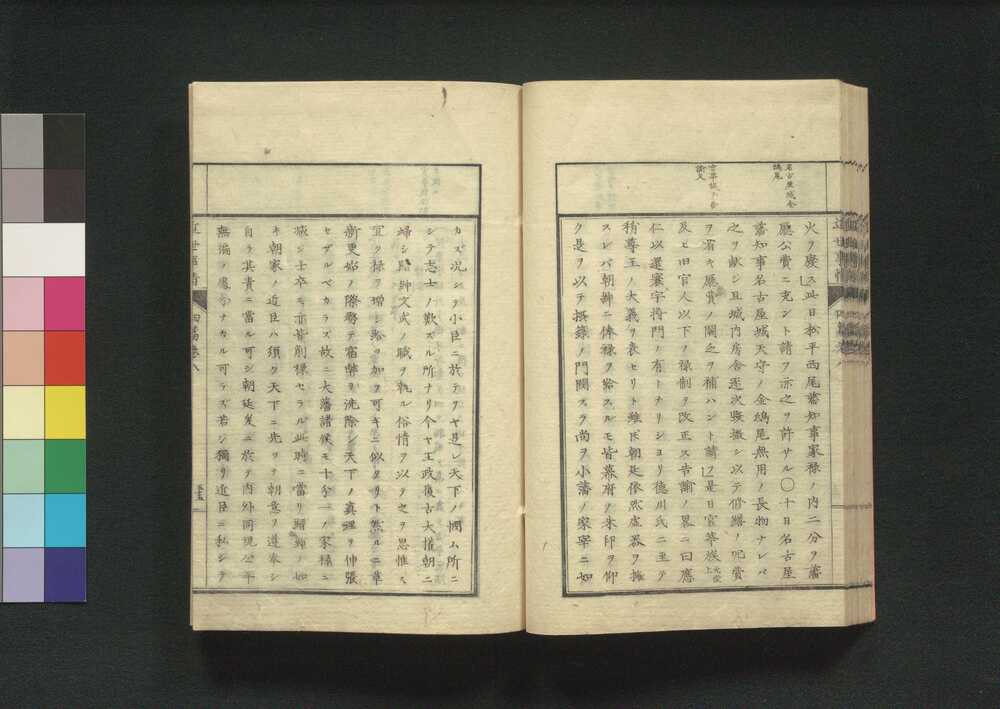 名古屋城金
鴟尾
官華族ニ告
諭文
火ヲ廢ス此日松平西尾藩知事家禄ノ内二分ヲ藩
廳公費ニ充ント請フ亦之ヲ許サル〇十日名古屋
藩知事名古屋城天守ノ金鴟尾無用ノ長物ナレバ
之ヲ献シ且城内房舎逐次毀撤シ以テ修繕ノ冗費
ヲ省キ賑賞ノ闕之ヲ補ハント請フ是日官華族
及ビ旧官人以下ノ禄制ヲ改正ス告諭ノ畧ニ曰應
仁以還寰宇搏鬥ノ有トナリショリ徳川氏ニ至テ
稍尊王ノ大義ヲ表セリト雖ドモ朝廷依然虚器ヲ擁
スレバ朝紳ニ俸禄ヲ給スルモ皆幕府ノ朱印ヲ仰
ク是ヲ以テ摂籙ノ門閥スラ尚ヲ小藩ノ家宰ニ如
カズ况シヲ小臣ニ於テヲヤ是レ天下ノ憫ム所ニ
シテ志士ノ歎ズル所ナリ今ヤ王政復古大權朝ニ
歸シ縉紳文武ノ職ヲ執ル俗情ヲ以テ之ヲ思惟ス
宜ク禄ヲ増シ給ヲ加フ可キニ似タリト然ルニ維
新更始ノ際務テ宿弊ヲ洗除シ天下ノ眞理ヲ伸張
セザルベカラズ故ニ大藩諸侯モ十分一ノ家禄ニ
減シ士卒モ亦皆削禄セラル此時ニ當リ縉紳ノ如
キ朝家ノ近臣ハ須ク天下ニ先ッテ朝意ヲ遵奉シ
自ラ其責ニ當ル可シ朝廷爰ニ於テ内外同視公平
無偏ノ處分ナカル可ラズ若シ獨リ近臣ニ私シテ